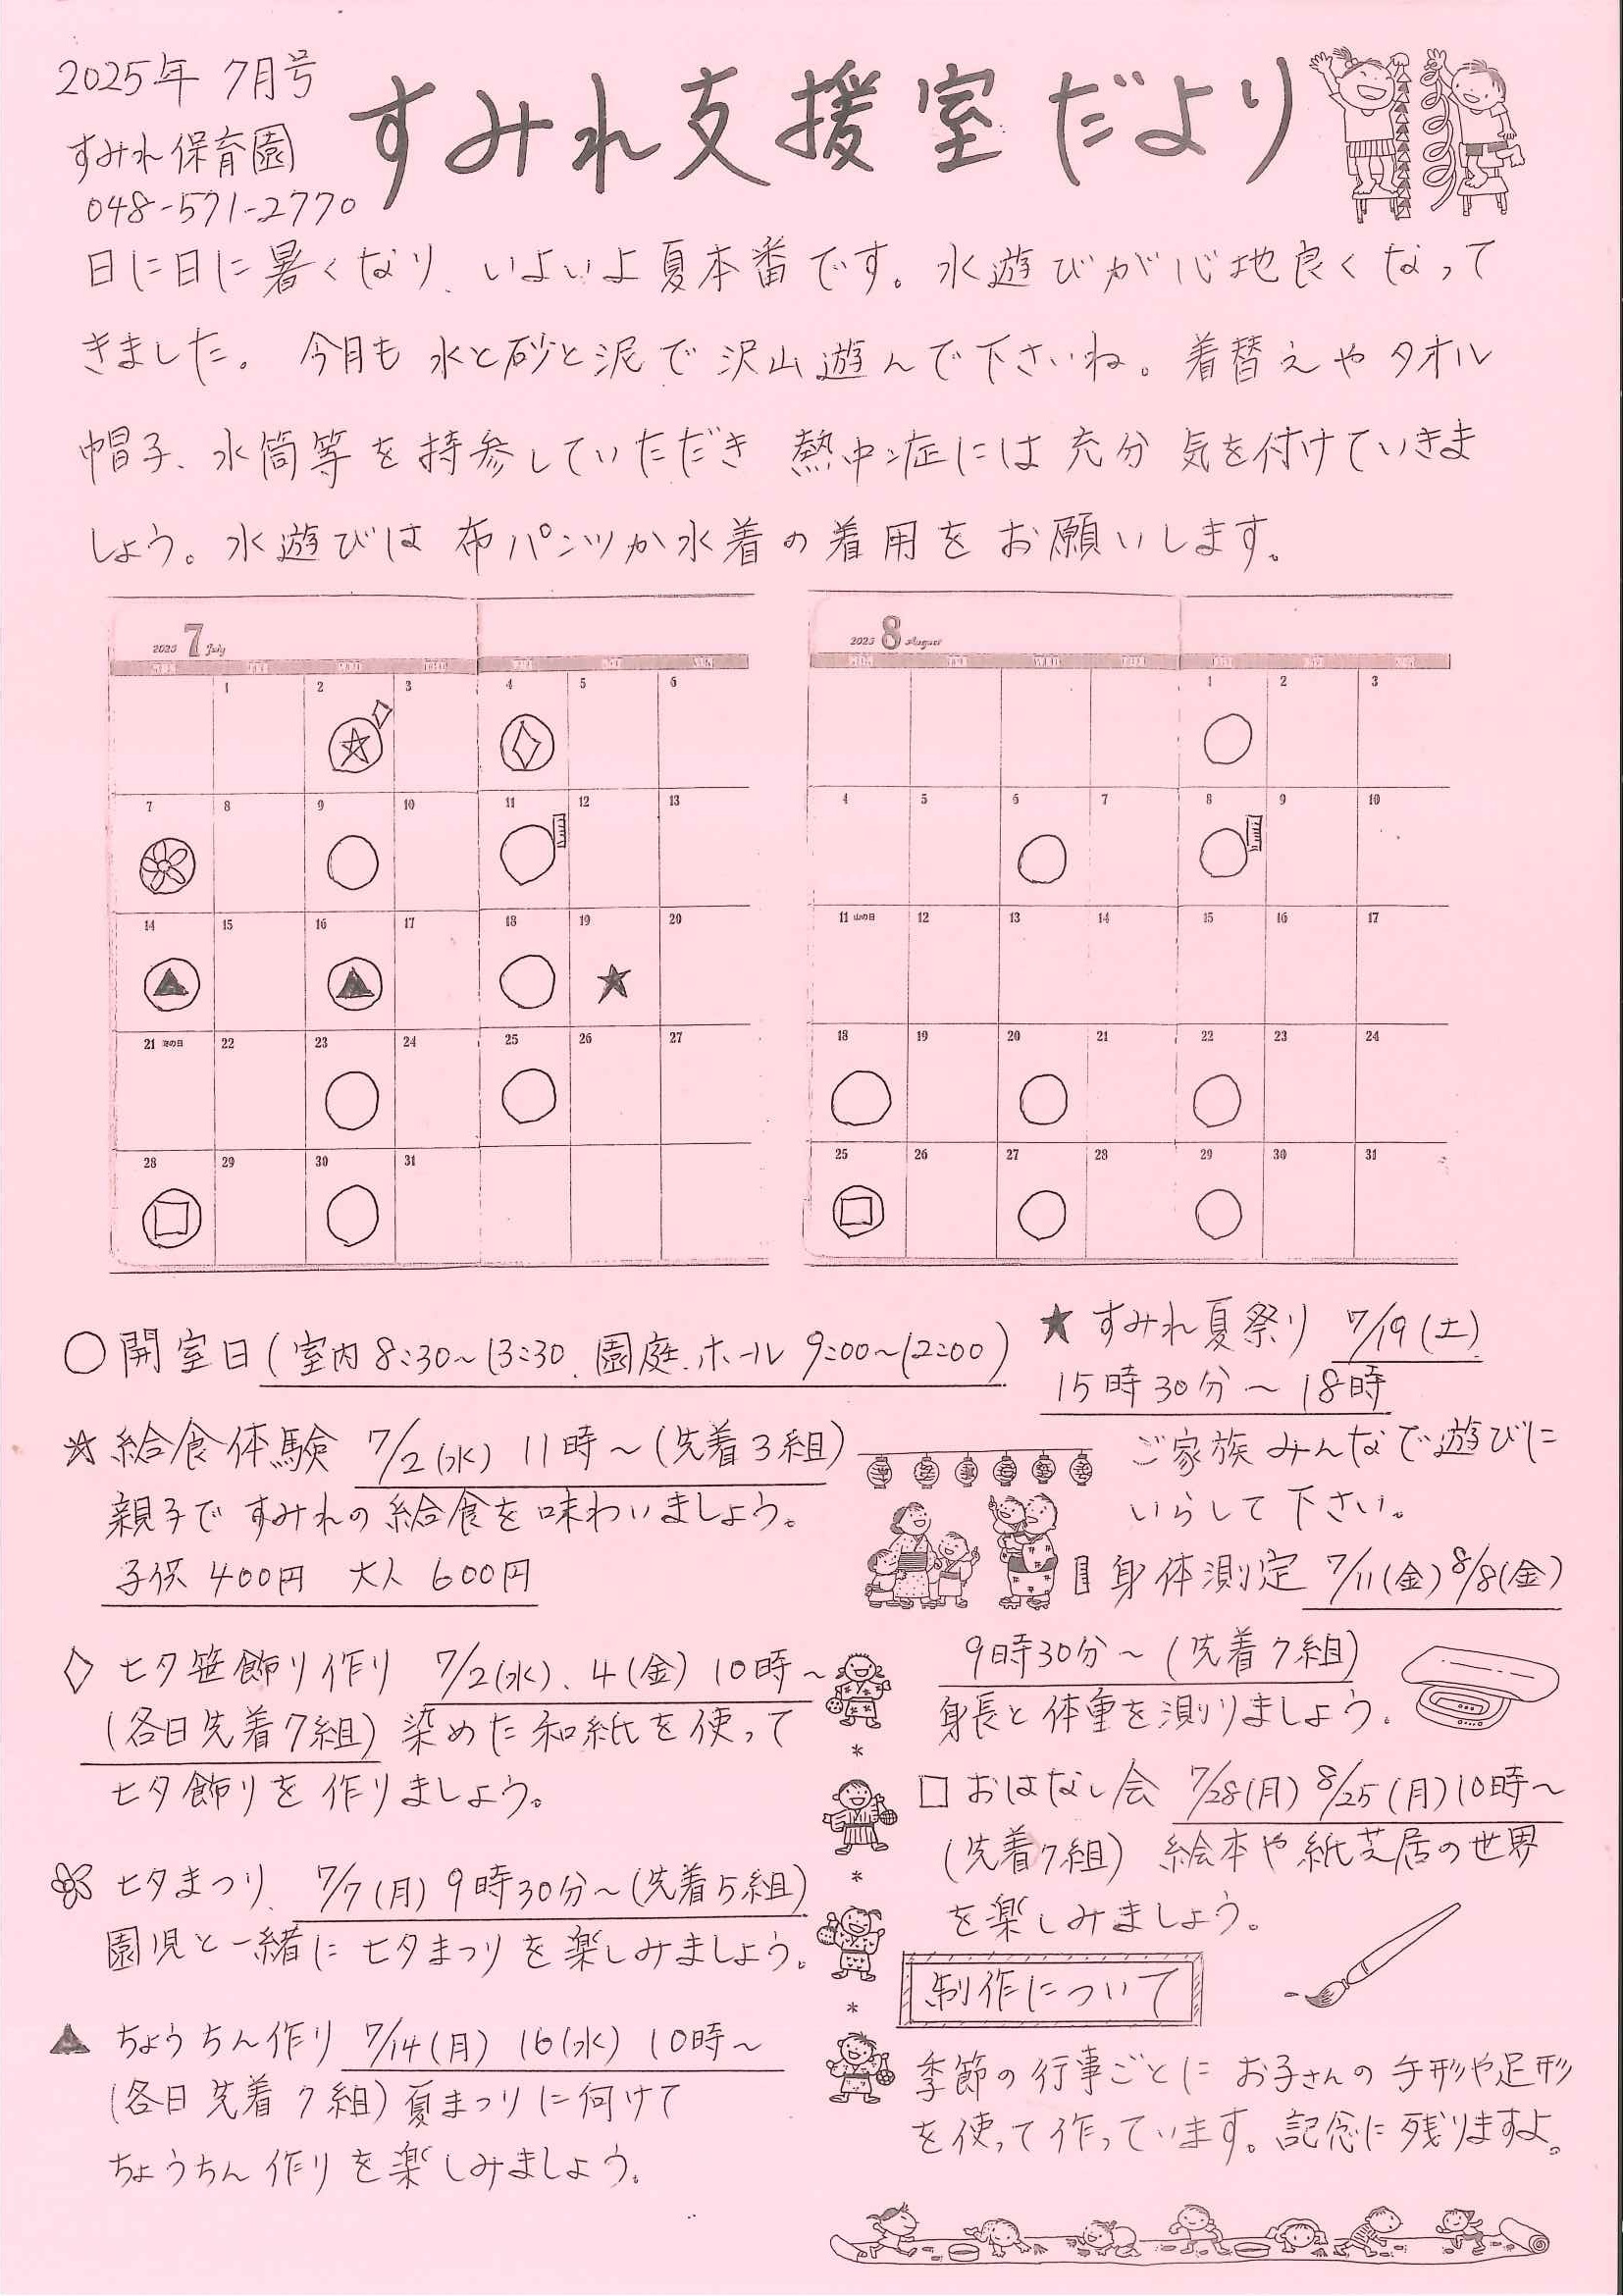 2025年 7月号
すみれ保育園
048-571-2770
すみれ支援室だより
日に日に暑くなり、いよいよ夏本番です。水遊びが心地良くなって
きました。今月も 水と砂と泥で沢山遊んで下さいね。着替えやタオル
帽子、水筒等を持参していただき 熱中症には充分 気を付けていきま
しょう。水遊びは 布パンツか水着の着用をお願いします。
2025 7 July
1 2 3 4 5 6
7 8 9 10 11 12 13
14 15 16 17 18 19 20
21 海の日 22 23 24 25 26 27
28 29 30 31
2025 8 August
1 2 3
4 5 6 7 8 9 10
11 山の日 12 13 14 15 16 17
18 19 20 21 22 23 24
25 26 27 28 29 30 31
○開室日(室内8:30~13:30、園庭、ホール 9:00~12:00)
☆給食体験 7/2(水) 11時~(先着3組)
親子ですみれの給食を味わいましょう。
子供 400円 大人 600円
◇ 七夕笹飾り作り 7/2(水)、4(金) 10時~
(各日先着7組) 染めた和紙を使って
七夕飾りを作りましょう。
七夕まつり、7/7(月) 9時30分~(先着5組)
園児と一緒に七夕まつりを楽しみましょう。
▲ ちょうちん作り 7/14(月) 16(水) 10時~
(各日先着 7組) 夏まつりに向けて
ちょうちん作りを楽しみましょう。
★ すみれ夏祭り 7/19(土)
15時30分~18時
ご家族みんなで遊びに
いらして下さい。
身体測定 7/11(金) 8/8(金)
9時30分~(先着7組)
身長と体重を測りましょう。
□ おはなし会 7/28(月) 8/25(月)10時~
(先着7組) 絵本や紙芝居の世界
を楽しみましょう。
制作について
季節の行事ごとに お子さんの手形や足形
を使って作っています。記念に残りますよ。